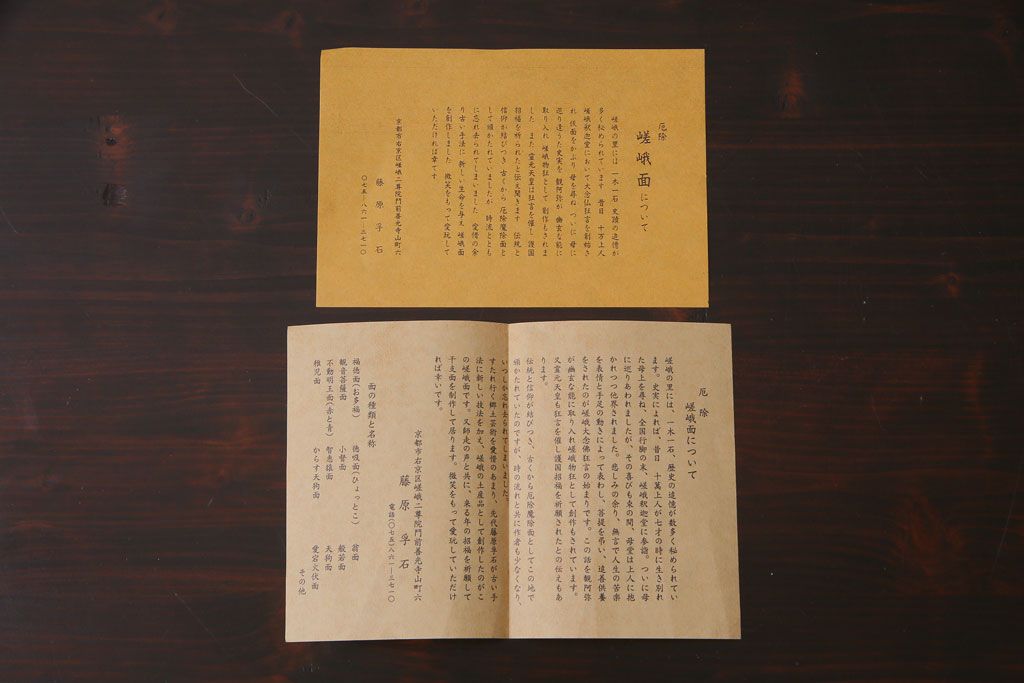 厄除
嵯峨面について
嵯峨の里には 一木一石 史蹟の追憶が
多く秘められています 昔日 十万上人
嵯峨釈迦堂において大念仏狂言を創始さ
れ 仮面をかぶり 母を尋ね ついに 母に
巡り逢うた史実を 観阿弥が 幽玄な能に
取り入れ 嵯峨物狂として 創作もされま
した また 霊元天皇は狂言を催し 護国
招福を祈られたと伝え聞きます 伝統と
信仰が結びつき 古くから 厄除魔除面と
して頒かたれていましたが 時流ととも
に忘れ去られてしまいました 愛惜の余
り古い手法に 新しい生命を与え 嵯峨面
を創作しました 微笑をもって愛玩して
いただければ幸です。
京都市右京区嵯峨二尊院門前善光寺山町六
藤原孚石
〇七五-八六一-三七一〇
厄除
嵯峨面について
嵯峨の里には、一木一石、歴史の追憶が数多く秘められてい
ます。史実によれば、昔日、十萬上人が七才の時に生き別れ
た母上を尋ね、全国行脚の末、嵯峨釈迦堂に参詣。ついに母
に巡りあわれましたが、その喜びも束の間、母堂は上人に抱
かれつつ他界されました。悲しみの余り、無言で人生の苦楽
を表情と手足の動きによって表わし、菩提を弔い、追善供養
をされたのが嵯峨大念佛狂言の始まりです。この話を観阿弥
が幽玄な能に取り入れ嵯峨物狂として創作もされています。
又霊元天皇も狂言を催し護国招福を祈願されたとの伝えもあ
ります。
伝統と信仰が結びつき、古くから厄除魔除面としてこの地で
頒かたれていたのですが、時の流れと共に作者も少なくなり、
いつしか忘れ去られてしまいました。
すたれ行く郷土芸術を愛惜のあまり、先代藤原孚石が古い手
法に新しい技法を加え、嵯峨の土産品として創作したのがこ
の嵯峨面です。又師走の声と共に、来る年の招福を祈願して
干支面を制作して居ります。微笑をもって愛玩していただけ
れば幸いです。
京都市右京区嵯峨二尊院門前善光寺山町六
藤原孚石
電話(〇七五)八六一-三七一〇
面の種類と名称
福徳面(お多福) 徳吸面(ひょっとこ) 翁面
観音菩薩面 小督面 般若面
不動明王面(赤と青) 智恵猿面 天狗面
稚児面 からす天狗面 愛宕火伏面
その他